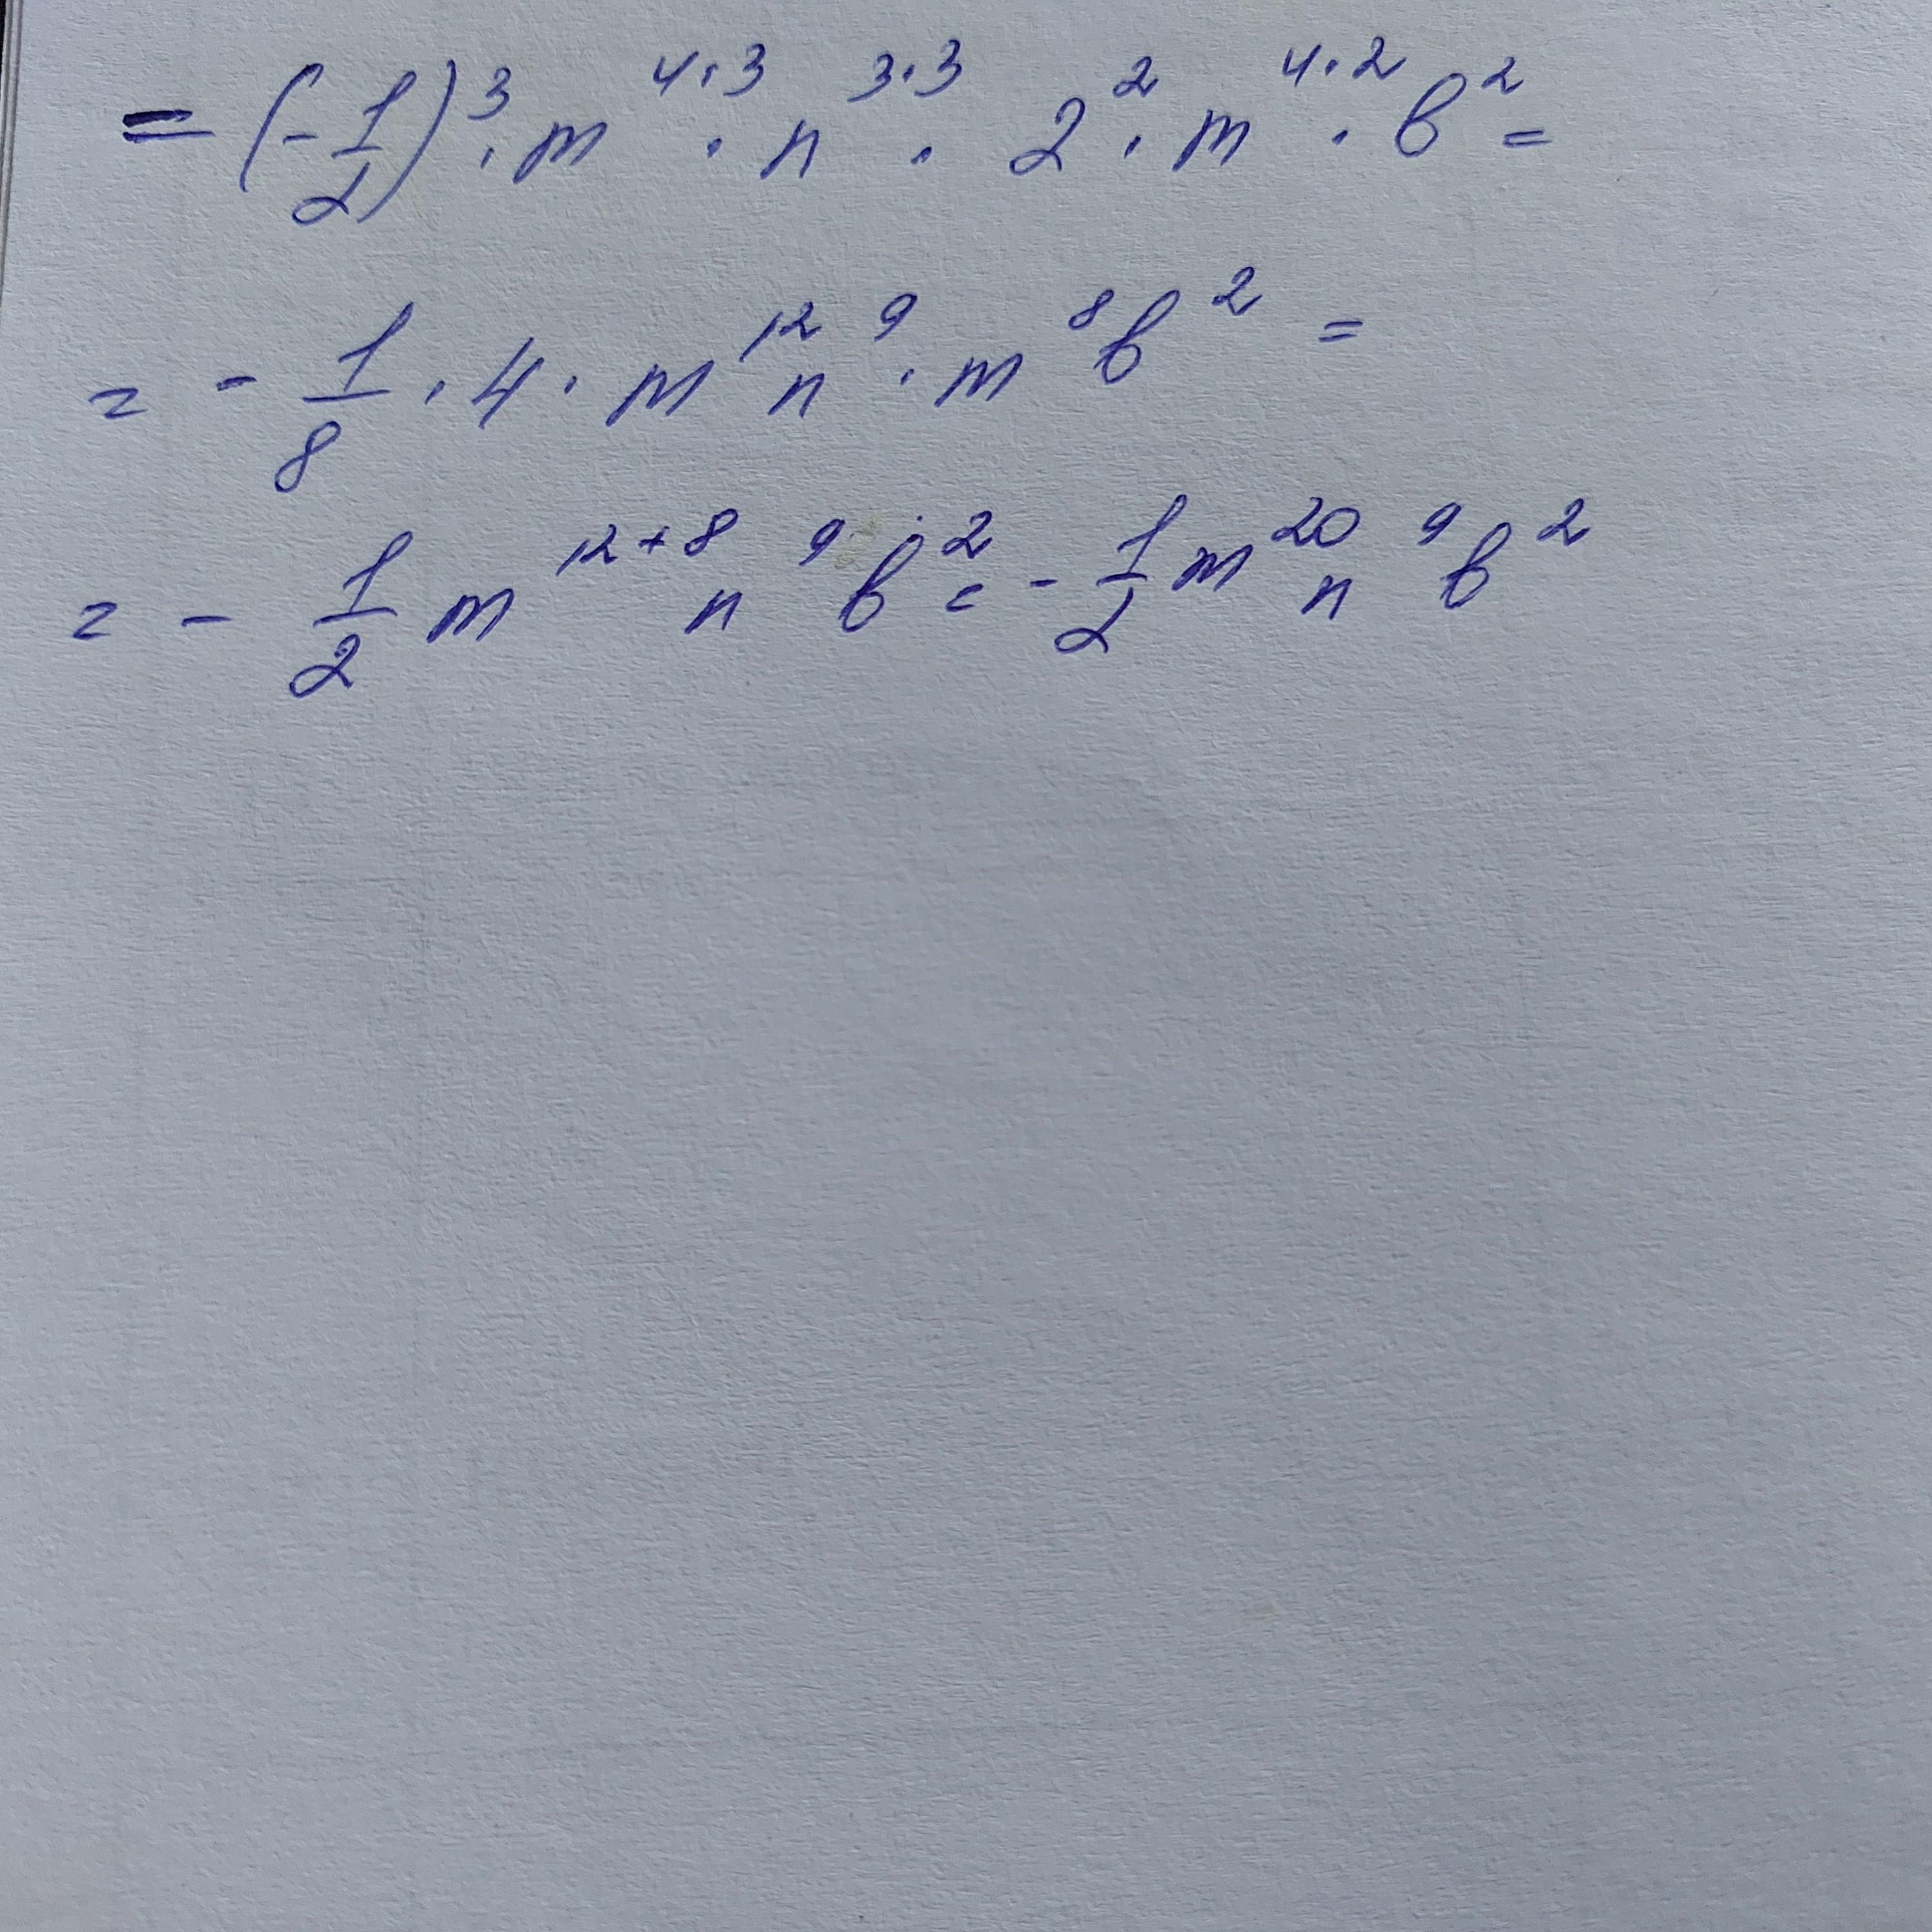 = (-1/2)³ · m⁴·³ · n³·³ · 2² · m⁴·² · b² =
= - 1/8 · 4 · m¹² n⁹ · m⁸ b² =
= - 1/2 m¹²⁺⁸ n⁹ b² = - 1/2 m²⁰ n⁹ b²